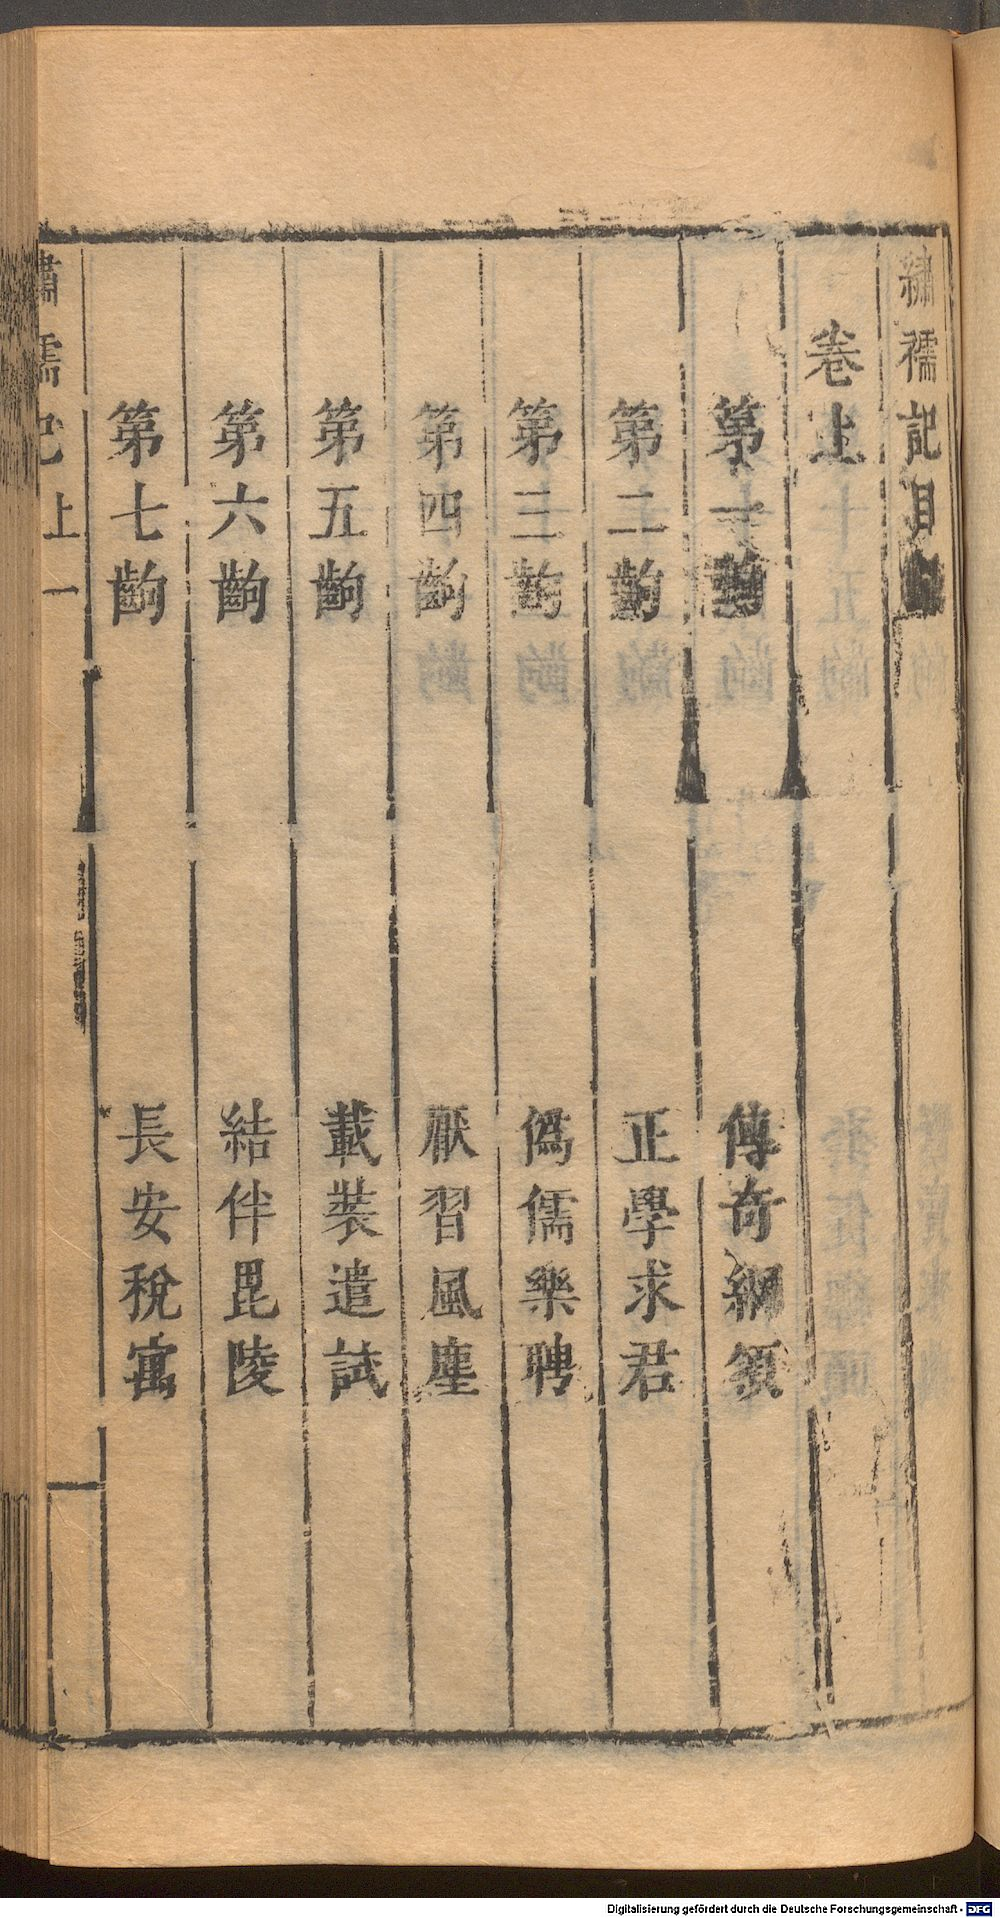 繡襦記目
卷上
第一齣 傳奇綱領
第二齣 正學求君
第三齣 僞儒樂聘
第四齣 厭習風塵
第五齣 載裝遣試
第六齣 結伴毘陵
第七齣 長安稅寓
繡襦記 上 一
Digitalisierung gefördert durch die Deutsche Forschungsgemeinschaft - DFG